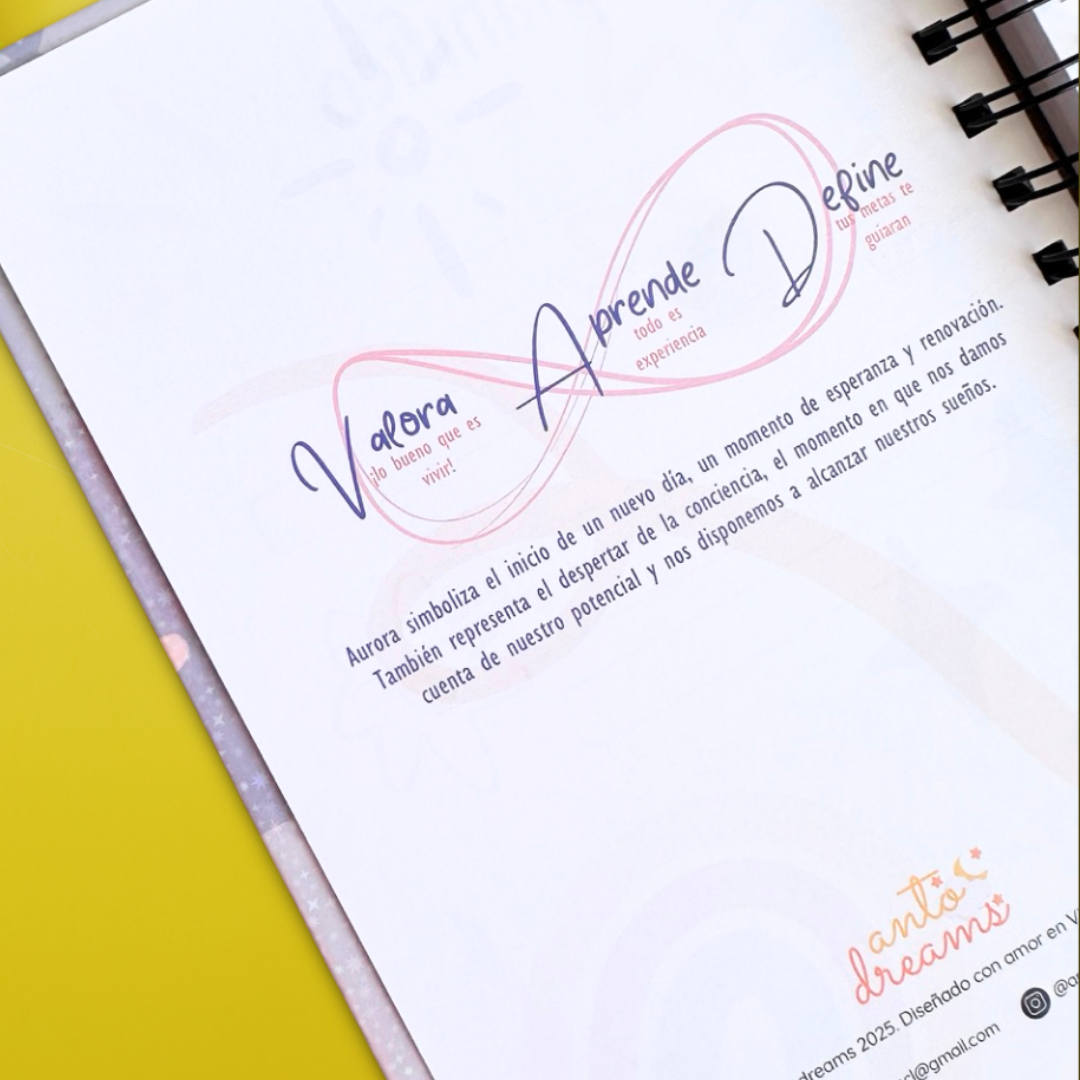 Valora
¡lo bueno que es
vivir!
Aprende
todo es
experiencia
Define
tus metas te
guiaran
Aurora simboliza el inicio de un nuevo día, un momento de esperanza y renovación.
También representa el despertar de la conciencia, el momento en que nos damos
cuenta de nuestro potencial y nos disponemos a alcanzar nuestros sueños.
anto
dreams
dreams 2025. Diseñado con amor en V
cl@gmail.com